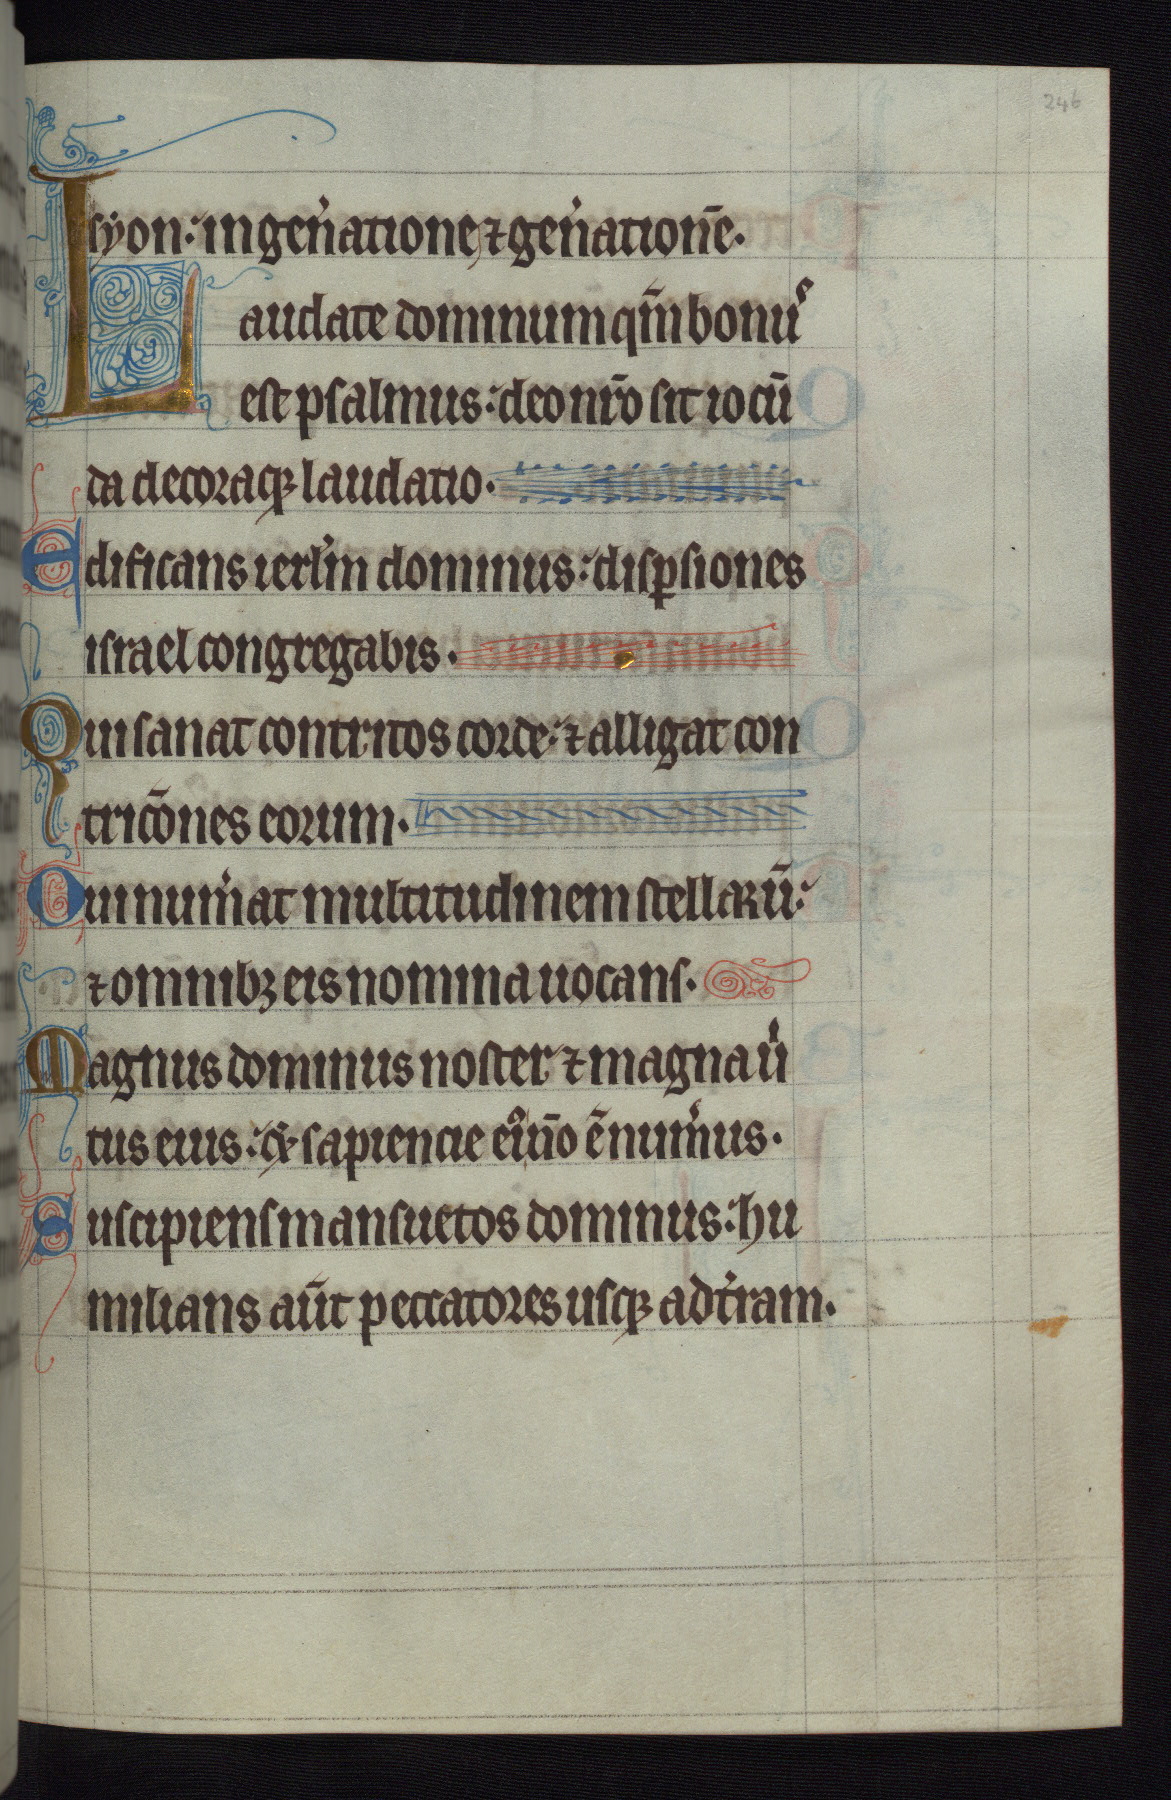 246
syon: in gen̉atione ⁊ gen̉ationē.
Laudate dominum qm̄ bonuˢ
est psalmus: deo nr̄o sit iocū
da decoraqꝫ laudatio.
Edificans ierl̉m dominus: disꝑsiones
israel congregabis.
Qui sanat contritos corde: ⁊ alligat con
tric̄ones eorum.
Qui num̉at multitudinem stellarū:
⁊ omnibꝫ eis nomina uocans.
Magnus dominus noster ⁊ magna uͥ
tus eius: ⁊ sapiencie eiꝰ nō ē num̉us.
Suscipiens mansuetos dominus: hu
milians aūt peccatores usqꝫ ad t̉ram.